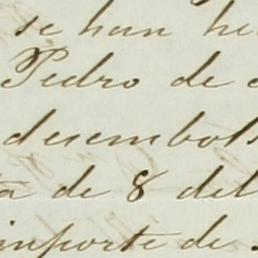 se han he
Pedro de
desembols
ta de 8 del
importe de